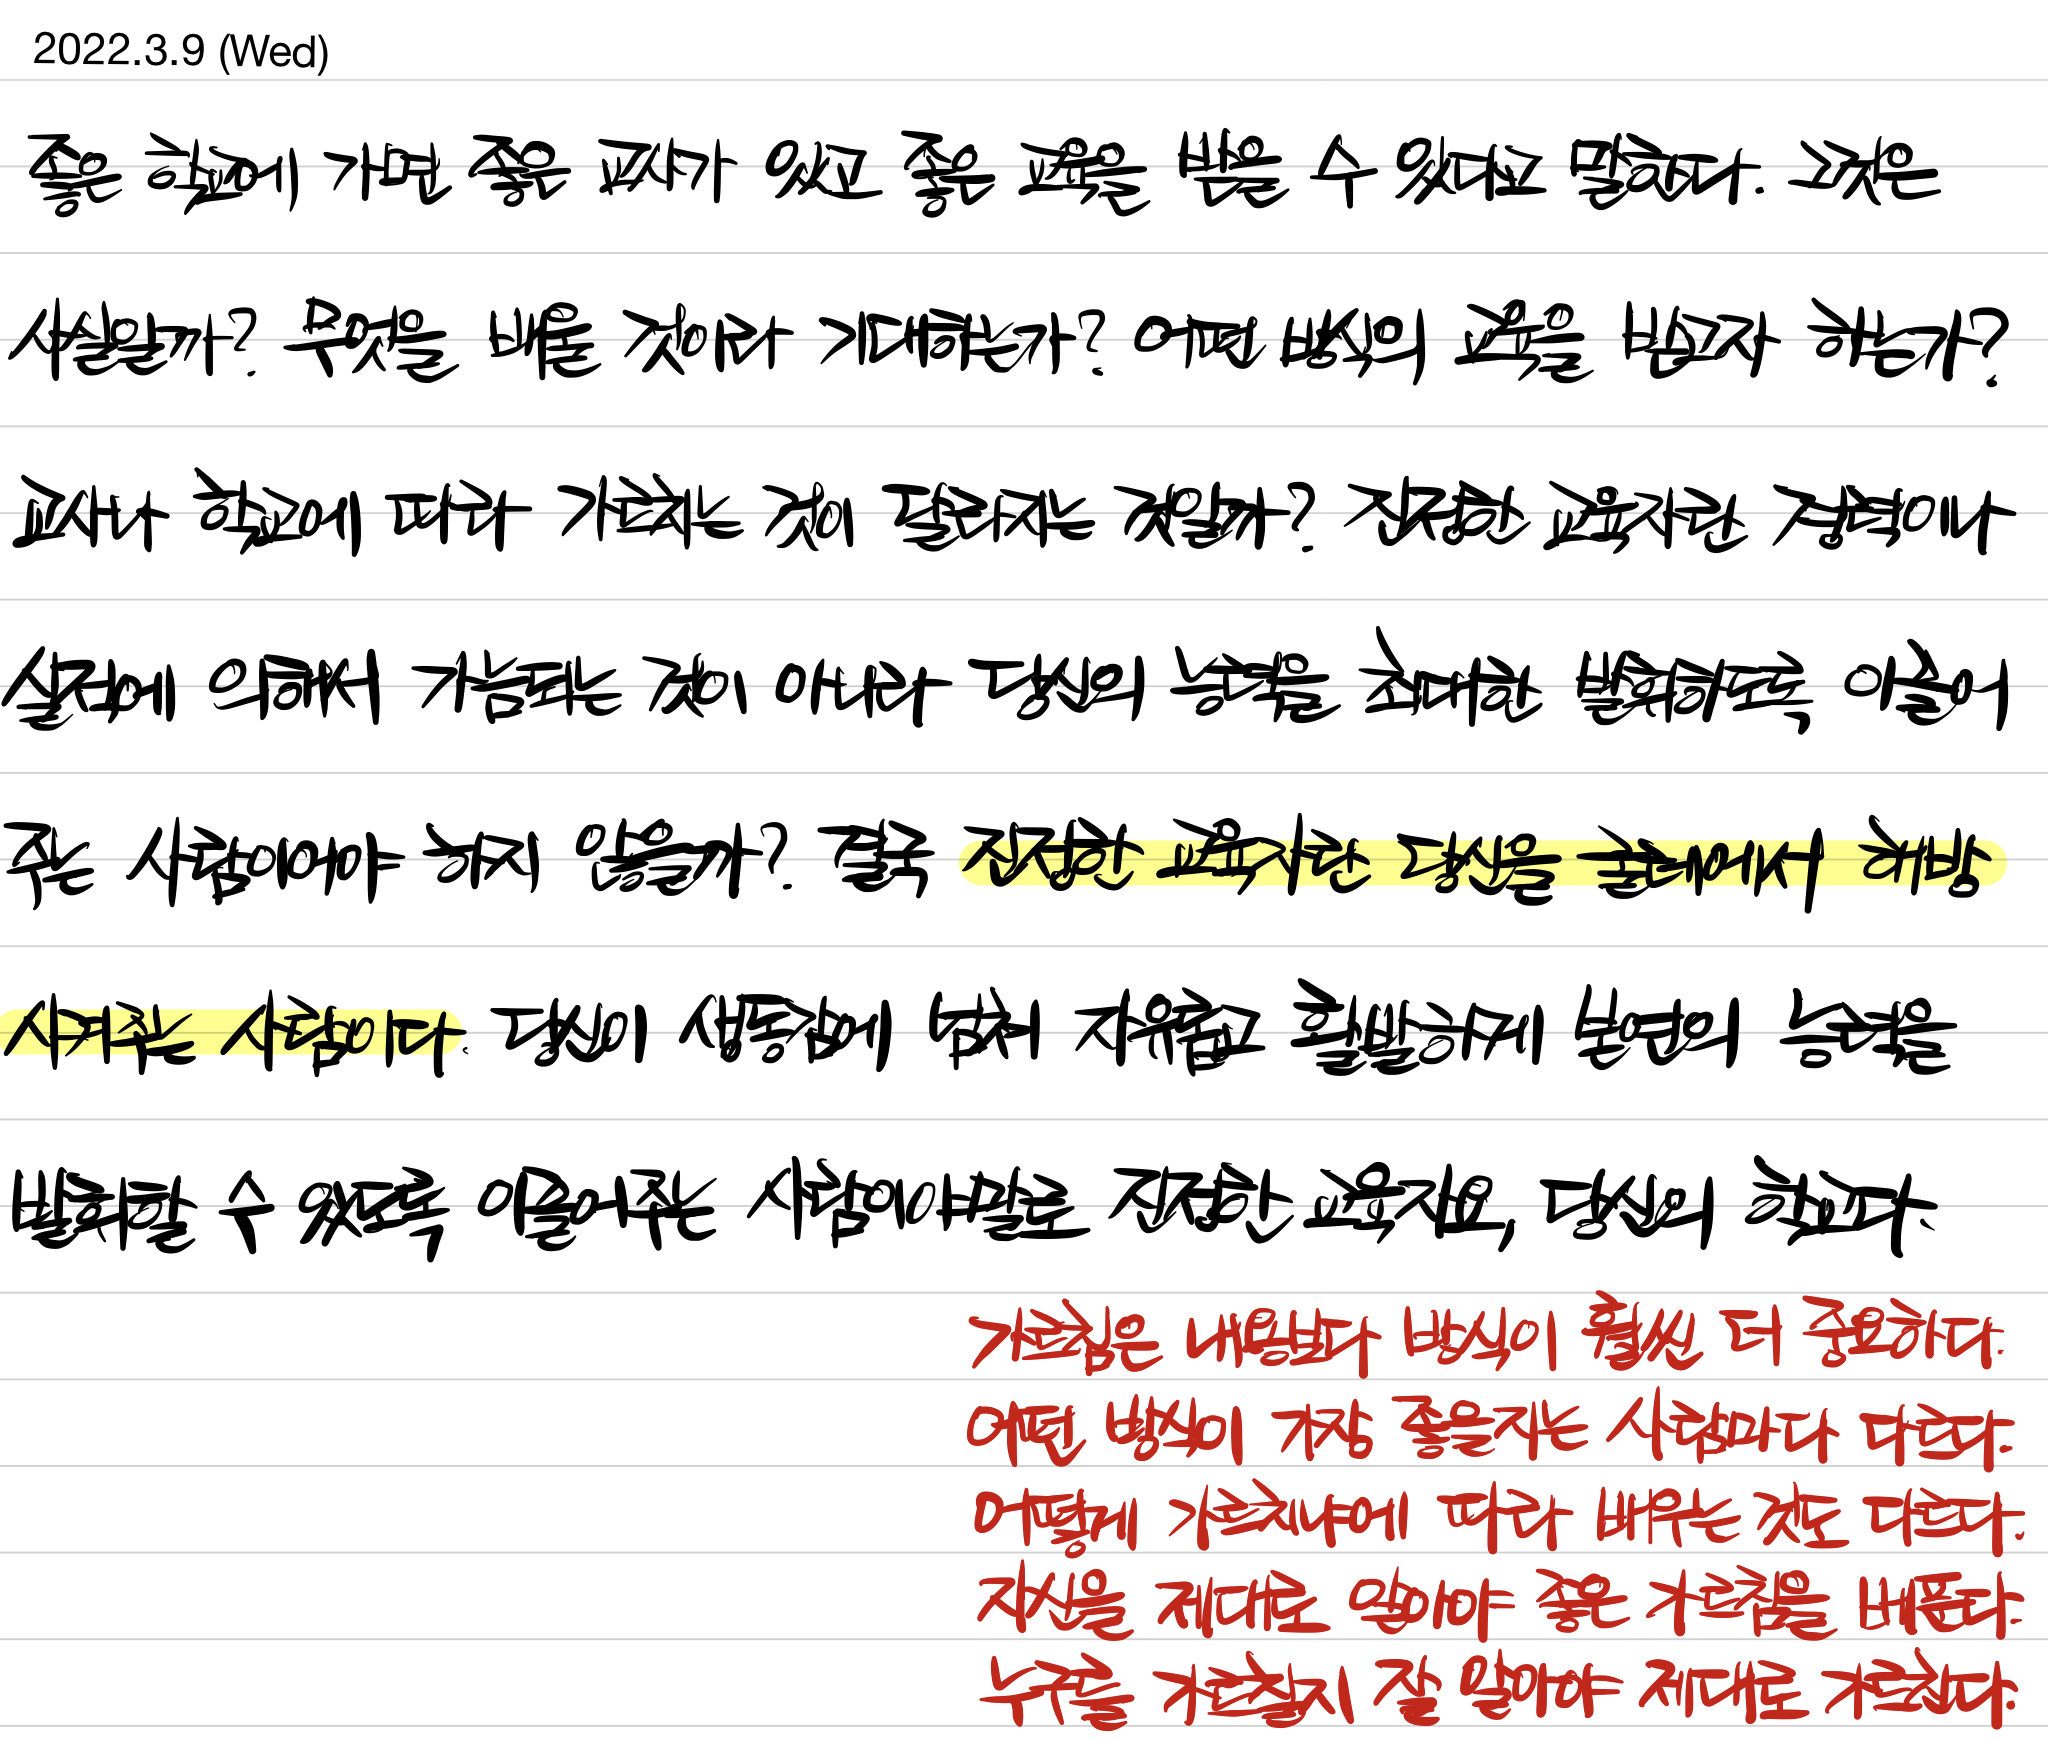 2022.3.9 (Wed)
좋은 학교에 가면 좋은 교사가 있고 좋은 교육을 받을 수 있다고 말한다. 그것은
사실일까? 무엇을 배울 것이라 기대하는가? 어떤 방식의 교육을 받고자 하는가?
교사나 학교에 따라 가르치는 것이 달라지는 것일까? 진정한 교육자란 경력이나
실적에 의해서 가늠되는 것이 아니라 당신의 능력을 최대한 발휘하도록 이끌어
주는 사람이어야 하지 않을까? 결국 진정한 교육자란 당신을 굴레에서 해방
시켜주는 사람이다. 당신이 생동감에 넘쳐 자유롭고 활발하게 본연의 능력을
발휘할 수 있도록 이끌어주는 사람이야말로 진정한 교육자요, 당신의 학교다.
가르침은 내용보다 방식이 훨씬 더 중요하다.
어떤 방식이 가장 좋을지는 사람마다 다르다.
어떻게 가르치냐에 따라 배우는 것도 다르다.
자신을 제대로 알아야 좋은 가르침을 베푼다.
누구를 가르칠지 잘 알아야 제대로 가르친다.